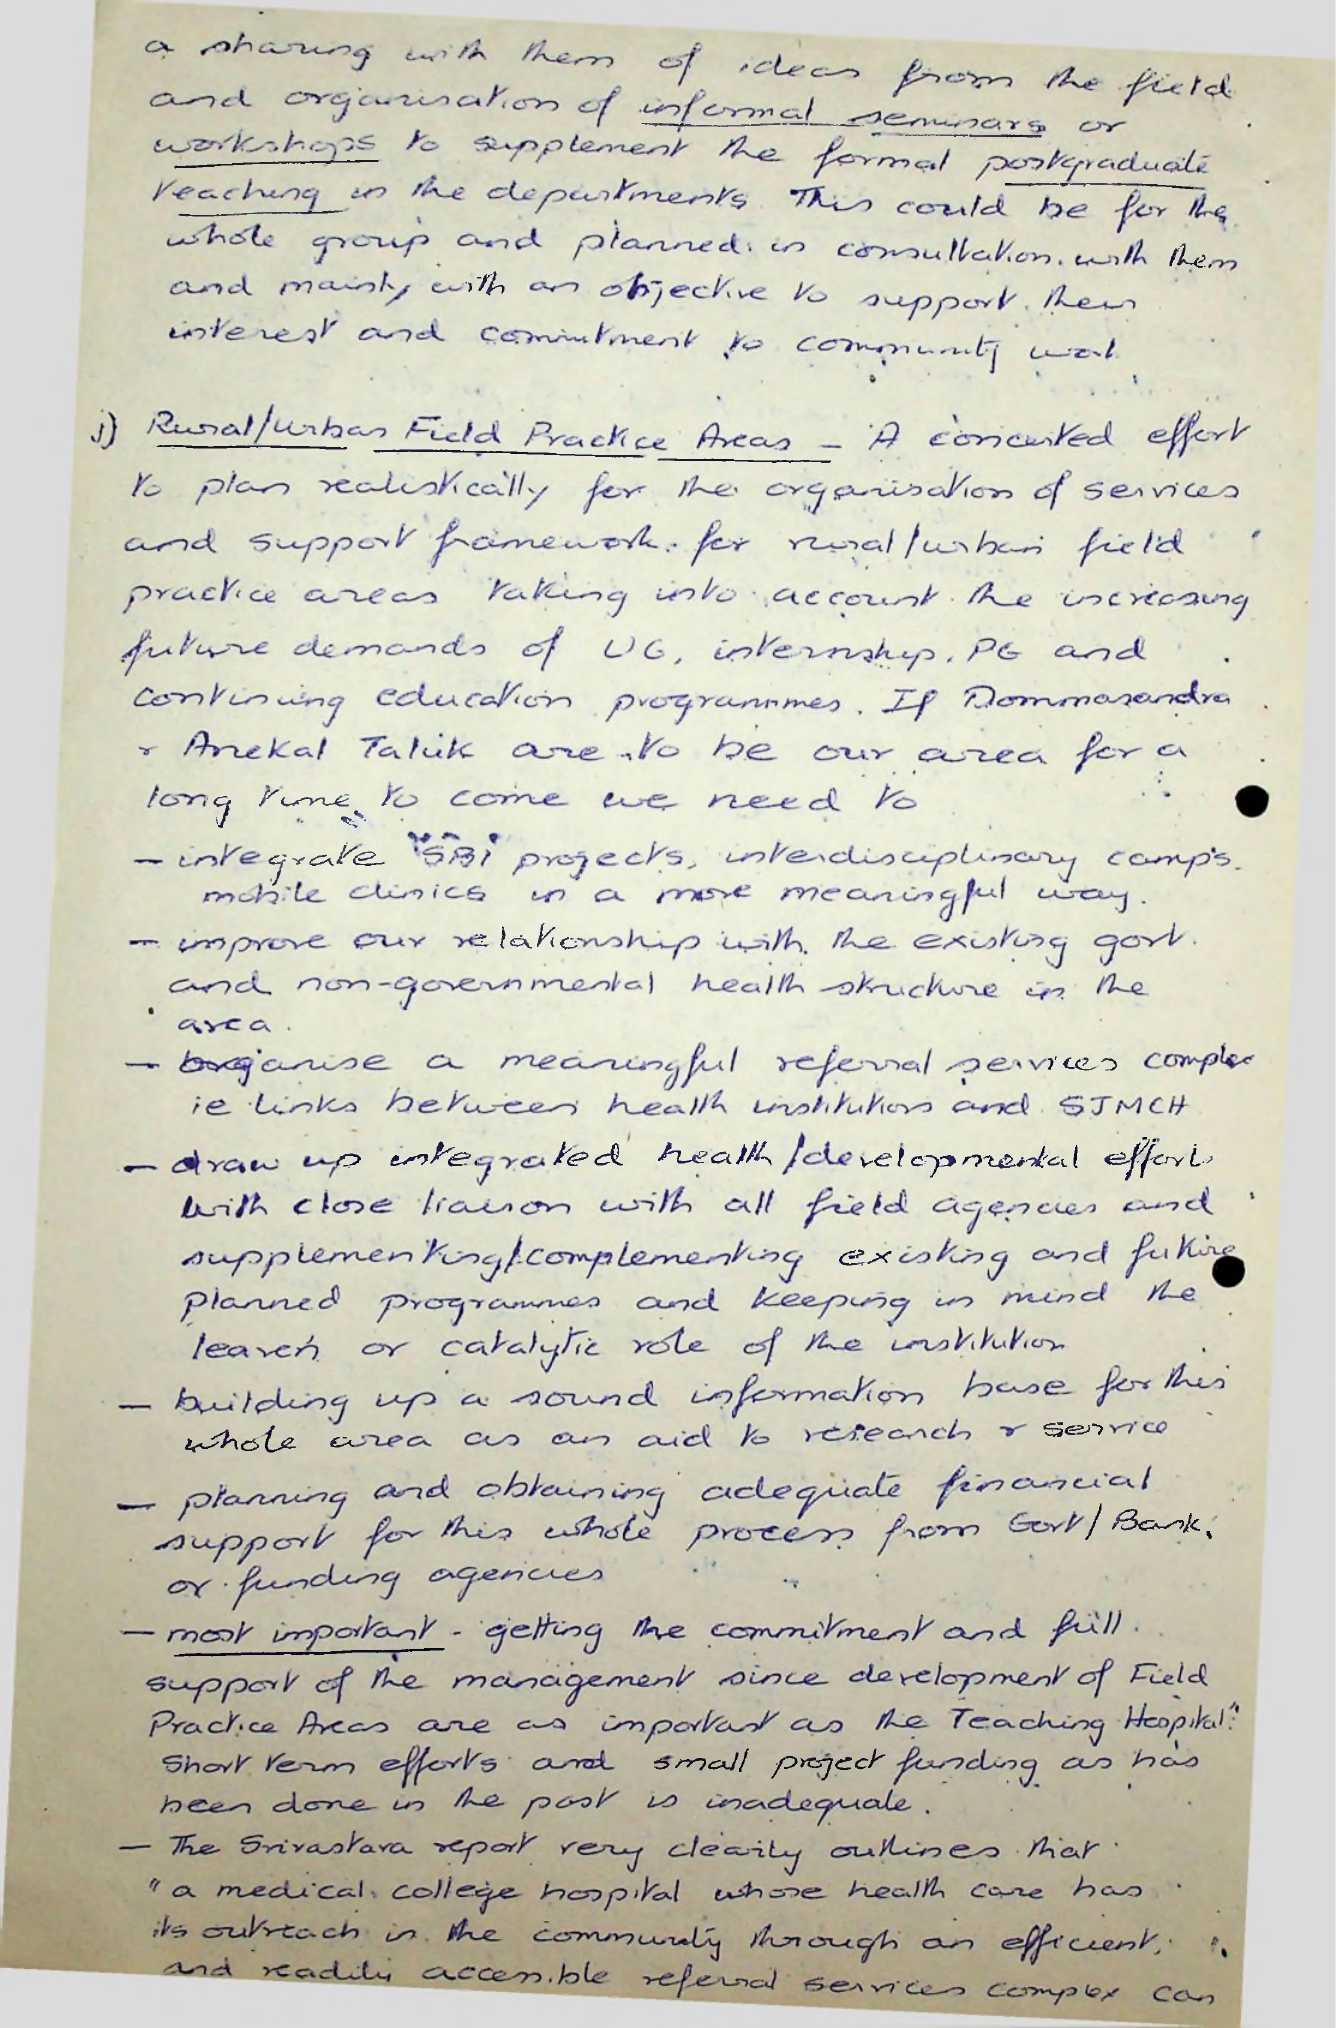 a sharing with them of ideas from the field
and organisation of informal seminars or
workshops to supplement the formal postgraduate
teaching in the departments. This could be for the
whole group and planned in consultation with them
and mainly with an objective to support their
interest and commitment to community work
j) Rural/Urban Field Practice Areas – A concerted effort
to plan realistically for the organisation of services
and support framework for rural/urban field
practice areas taking into account the increasing
future demands of UG, internship, PG and
continuing education programmes. If Dommasandra
& Anekal Taluk are to be our area for a
long time to come we need to
– integrate 'SBI' projects, interdisciplinary camps,
mobile clinics in a more meaningful way.
– improve our relationship with the existing govt.
and non-governmental health structure in the
area.
– organise a meaningful referral services complex
ie links between health institutions and SJMCH
– draw up integrated health/developmental efforts
with close liaison with all field agencies and
supplementing/complementing existing and future
planned programmes and keeping in mind the
leaven or catalytic role of the institution
– building up a sound information base for this
whole area as an aid to research & service
– planning and obtaining adequate financial
support for this whole process from Govt/Bank,
or funding agencies
– most important - getting the commitment and full
support of the management since development of Field
Practice Areas are as important as the Teaching Hospital."
Short term efforts and small project funding as has
been done in the past is inadequate.
– The Srivastava report very clearly outlines that
"a medical college hospital whose health care has
its outreach in the community through an efficient,
and readily accessible referral services complex can